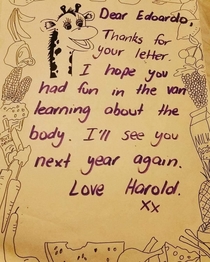 Dear Edoardo,
Thanks for
your letter.
I hope you
had fun in the van
learning about the
body. I'll see you
next year again.
Love Harold.
xx